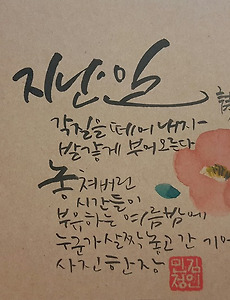 지난·일
각질을 떼어 내자
발갛게 부어오른다
놓쳐버린
시간들이
부유하는 여름밤에
누군가 살짝 놓고 간 기억
사진 한 장
김인
민정